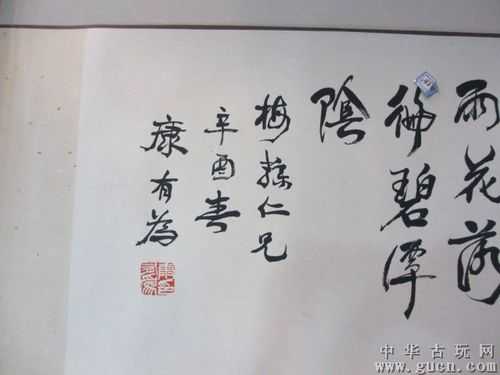 雨花
徧碧潭
陰
梅仁兄
辛酉春
康有為
中华古玩网
www.gucn.com